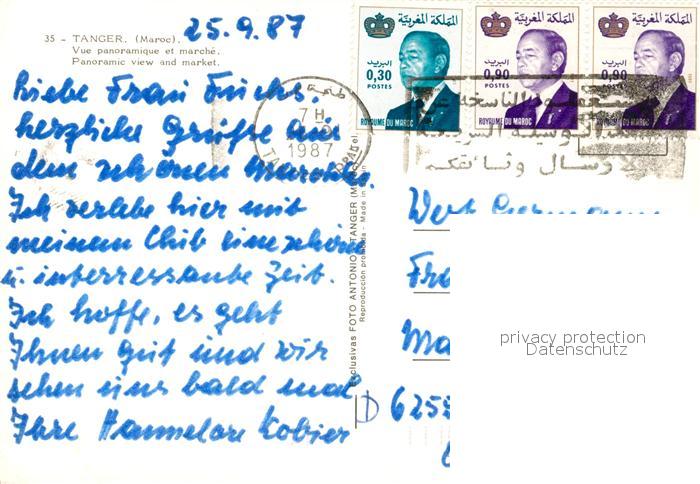 25.9.87
35 - TANGER. (Maroc).
Vue panoramique et marché.
Panoramic view and market.
Liebe Frau Fuchs,
herzliche Grüße aus
dem schönen Marokko.
Ich verlebe hier mit
meinem Club eine schöne
u. interressante Zeit.
Ich hoffe, es geht
Ihnen gut und wir
sehen uns bald mal
Ihre Hannelore
المملكة المغربية
البريد
0,30
POSTES
ROYAUME DU MAROC
المملكة المغربية
البريد
0,90
POSTES
ROYAUME DU MAROC
المملكة المغربية
البريد
0,90
POSTES
ROYAUME DU MAROC
طنجة
7 H
1987
لارسال وثائقكم
Exclusivas FOTO ANTONIO TANGER
Reproducción prohibida - Made in
West Germany
Fra
Ma
D 6255
privacy protection
Datenschutz